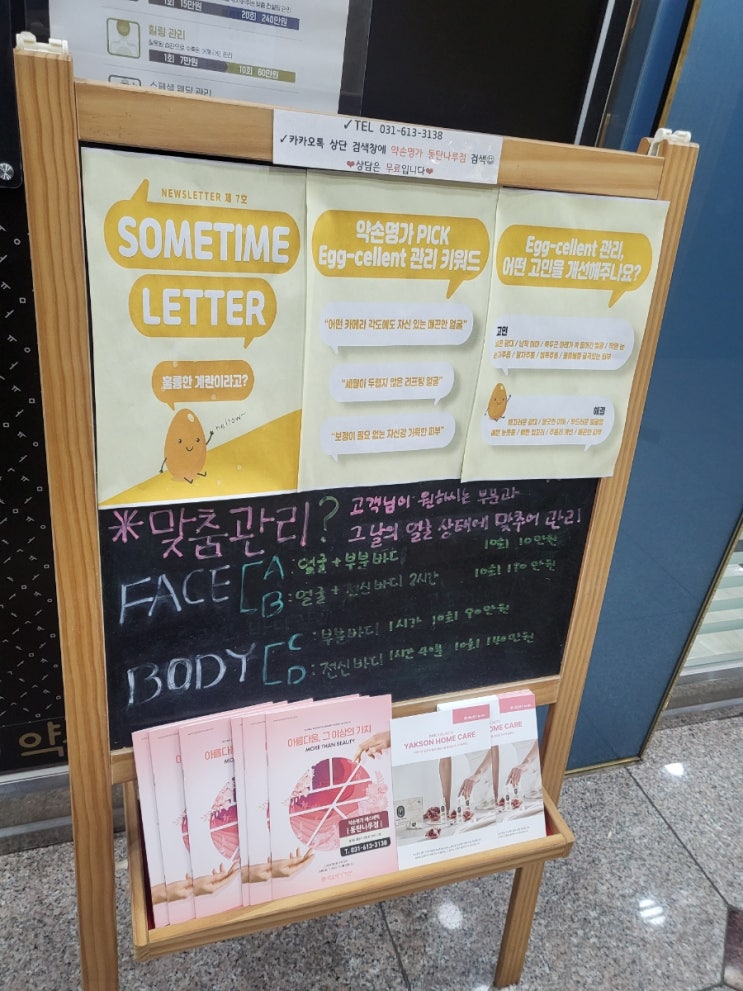 1회 15만원
20회 240만원
힐링 관리
1회 7만원
10회 60만원
스페셜 웨딩 관리
✓TEL 031-613-3138
✓카카오톡 상단 검색창에 약손명가 동탄나루점 검색☺
❤상담은 무료입니다❤
NEWSLETTER 제 7호
SOMETIME
LETTER
훌륭한 계란이라고?
hellow~
약손명가 PICK
Egg-cellent 관리 키워드
"어떤 카메라 각도에도 자신 있는 매끈한 얼굴"
"세월이 두렵지 않은 리프팅 얼굴"
"보정이 필요 없는 자신감 가득한 피부"
Egg-cellent 관리,
어떤 고민을 개선해주나요?
고민
해결
*맞춤관리? 고객님이 원하시는 부분과
그날의 얼굴 상태에 맞추어 관리
FACE
A : 얼굴 + 부분바디
B : 얼굴 + 전신바디 2시간
10회 170만원
BODY
C : 부분바디 1시간 10회 90만원
D : 전신바디 1시간 40분 10회 140만원
아름다움, 그 이상의 가치
MORE THAN BEAUTY
약손명가 에스테틱
동탄나루점
T. 031-613-3138
YAKSON HOME CARE
HOME CARE
약